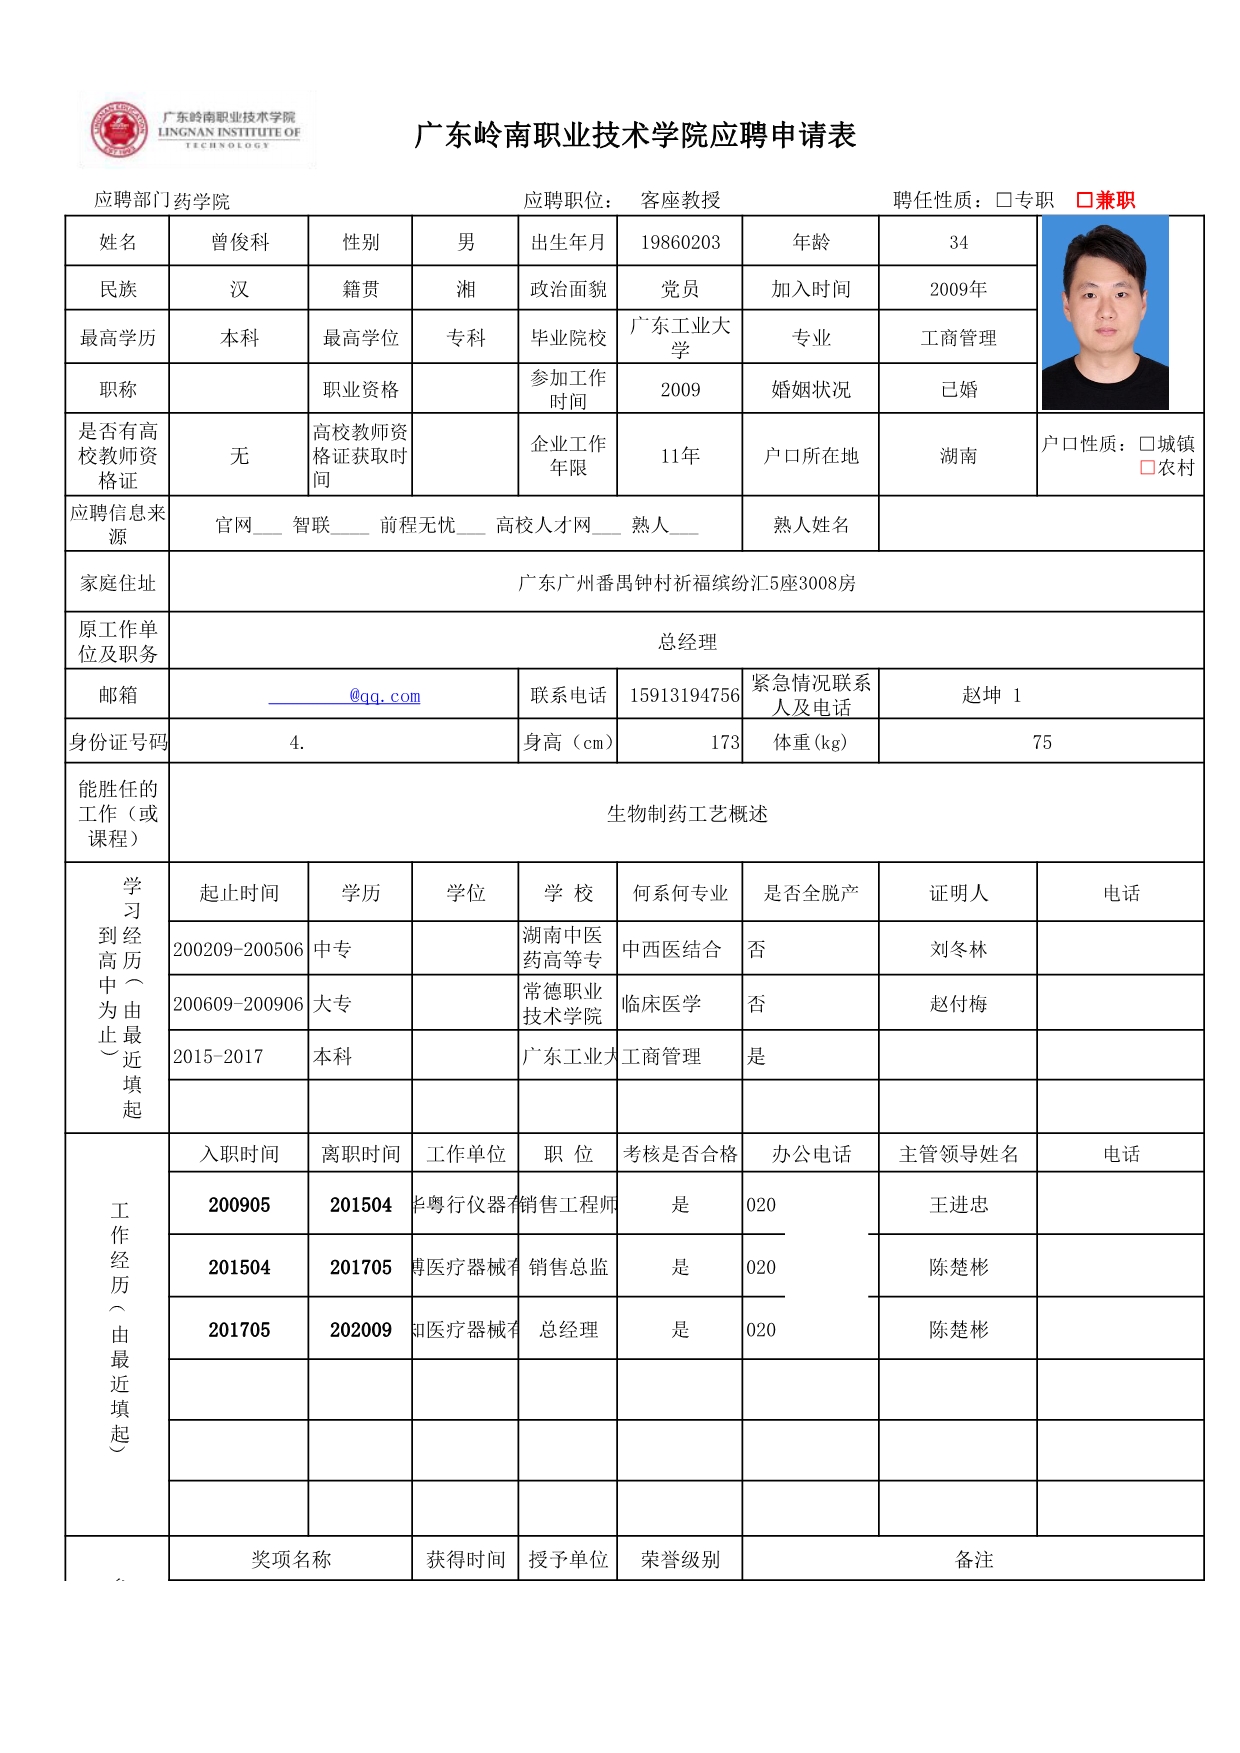 广东岭南职业技术学院
LINGNAN INSTITUTE OF
TECHNOLOGY
广东岭南职业技术学院应聘申请表
应聘部门 药学院 应聘职位： 客座教授 聘任性质：□专职 □兼职
姓名 曾俊科 性别 男 出生年月 19860203 年龄 34
民族 汉 籍贯 湘 政治面貌 党员 加入时间 2009年
最高学历 本科 最高学位 专科 毕业院校 广东工业大学 专业 工商管理
职称 职业资格 参加工作时间 2009 婚姻状况 已婚
是否有高校教师资格证 无 高校教师资格证获取时间 企业工作年限 11年 户口所在地 湖南 户口性质：□城镇 □农村
应聘信息来源 官网___ 智联____ 前程无忧___ 高校人才网___ 熟人___ 熟人姓名
家庭住址 广东广州番禺钟村祈福缤纷汇5座3008房
原工作单位及职务 总经理
邮箱 @qq.com 联系电话 15913194756 紧急情况联系人及电话 赵坤 1
身份证号码 4. 身高（cm） 173 体重(kg) 75
能胜任的工作（或课程） 生物制药工艺概述
学习经历（由最近填起到高中为止）
起止时间 学历 学位 学 校 何系何专业 是否全脱产 证明人 电话
200209-200506 中专 湖南中医药高等专 中西医结合 否 刘冬林
200609-200906 大专 常德职业技术学院 临床医学 否 赵付梅
2015-2017 本科 广东工业大 工商管理 是
工作经历（由最近填起）
入职时间 离职时间 工作单位 职 位 考核是否合格 办公电话 主管领导姓名 电话
200905 201504 粤行仪器有 销售工程师 是 020 王进忠
201504 201705 医疗器械有 销售总监 是 020 陈楚彬
201705 202009 医疗器械有 总经理 是 020 陈楚彬
奖项名称 获得时间 授予单位 荣誉级别 备注